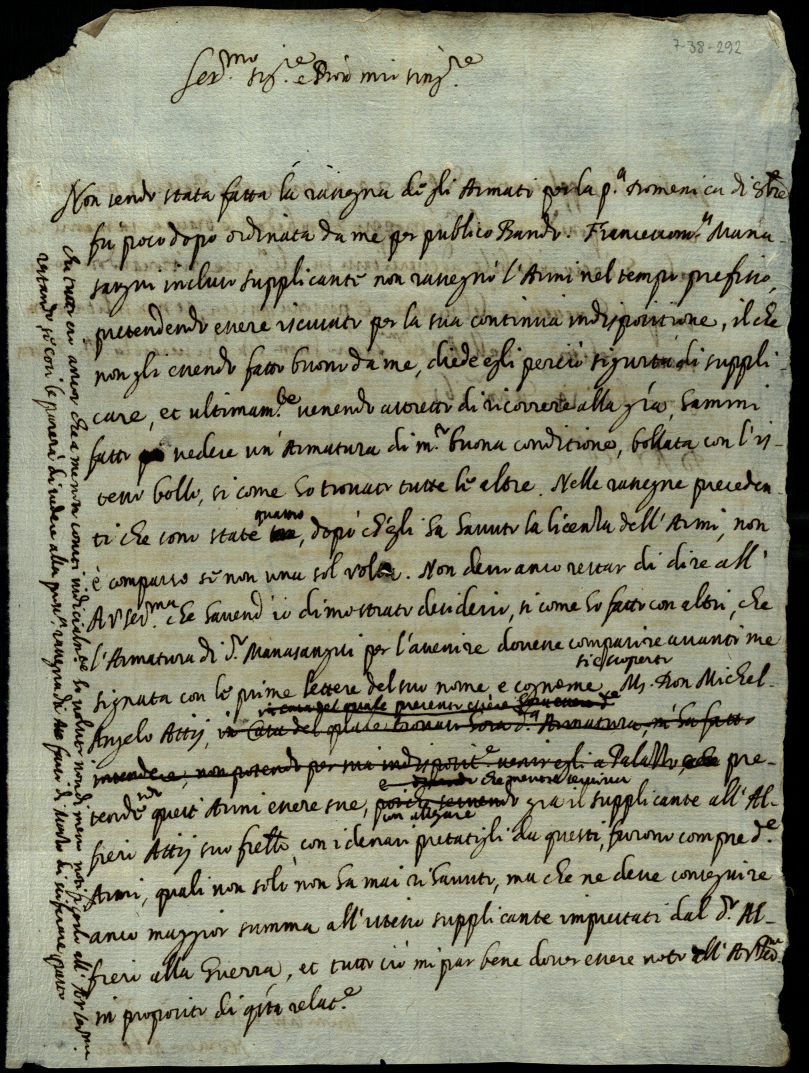 7-38-292
Ser.mo Sig.re e Pron mio sing.re
Non sendo stata fatta la rassegna de gli Armati per la p.a Domenica di 8bre
fu poco dopo ordinata da me per publico Bando. Francesco M.a Mana-
sangui incluso supplicante non rassegnò l'Armi nel tempo prefisso,
pretendendo essere iscusato per la sua continua indispositione, il che
non gli essendo fatto buono da me, diede egli perciò sigurtà di suppli-
care, et ultimam.te venendo astretto di ricorrere alla gra, hammi
fatto vedere un'Armatura di m.to buona conditione, bollata con l'is-
tesso bollo, si come ho trovato tutte le altre. Nelle rassegne preceden-
ti che sono state quattro, dopo ch'egli ha havuto la licenza dell'Armi, non
è comparso se non una sol volta. Non devo anco restar di dire all'
A.V. Ser.ma che havend'io dimostrato desiderio, si come ho fatto con altri, che
l'Armatura di d.o Manasangui per l'avenire dovesse comparire avanti me
signata con le prime lettere del suo nome, e cogneme, si è scoperto Ms. Don Michel-
Angelo Attij, in Casa del quale trovasi hora d.a Armatura, m'ha fatto
intendere, non potendo per sua indisposit.e venir egli a Palazzo, pre-
tende quest'Armi essere sue, che mentre serviva già il supplicante all'Al-
con allegare
fieri Attij suo frello con i denari prestatigli da questi, furono compre d.e
Armi, quali non solo non ha mai rihavuto, ma che ne deve conseguire
anco maggior summa all'istesso supplicante imprestati dal d.o Al-
fieri alla Guerra, et tutto ciò mi par bene dover essere noto all'A.V. Ser.
in proposito di q.sta relat.e
che tutto ciò ancor che a me non consti indicialm.te ho voluto nondimeno notificarlo all'A.V. Ser.ma